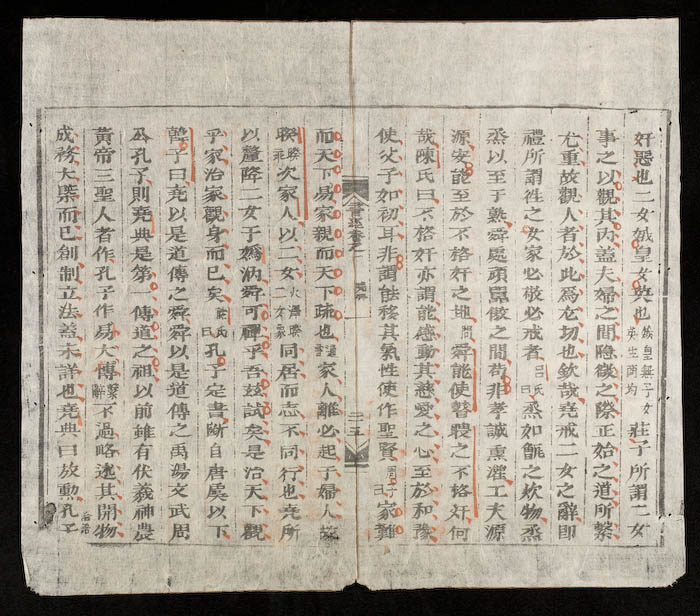 奸惡也二女娥皇女英也娥皇無子女英生商均莊子所謂二女
事之以觀其內盖夫婦之間隐微之際正始之道所繫
尤重故觀人者於此爲尤切也欽哉堯戒二女之辭即
禮所謂徃之女家必敬必戒者吕氏曰烝如甑之炊物烝
烝以至于熟舜處頑嚚傲之間苟非孝誠熏灌工夫源
源安能至於不格奸之地問舜能使瞽瞍之不格奸何
哉陳氏曰不格奸亦謂能感動其慈愛之心至於和豫
使父子如初耳非謂能移其氣性使作聖賢周子曰家難
書經卷之一
二五
而天下易家親而天下疏也家人離必起于婦人故
睽次家人以二女同居而志不同行也堯所
以釐降二女于嬀汭舜可禪乎吾玆試矣是治天下觀
乎家治家觀身而已矣氏曰孔子定書斷自唐虞以下
韓子曰堯以是道傳之舜舜以是道傳之禹湯文武周
公孔子則堯典是第一傳道之祖以前雖有伏羲神農
黃帝三聖人者作孔子作易大傳繫辭不過略述其開物
成務大槩而已創制立法盖未詳也堯典曰放勳孔子